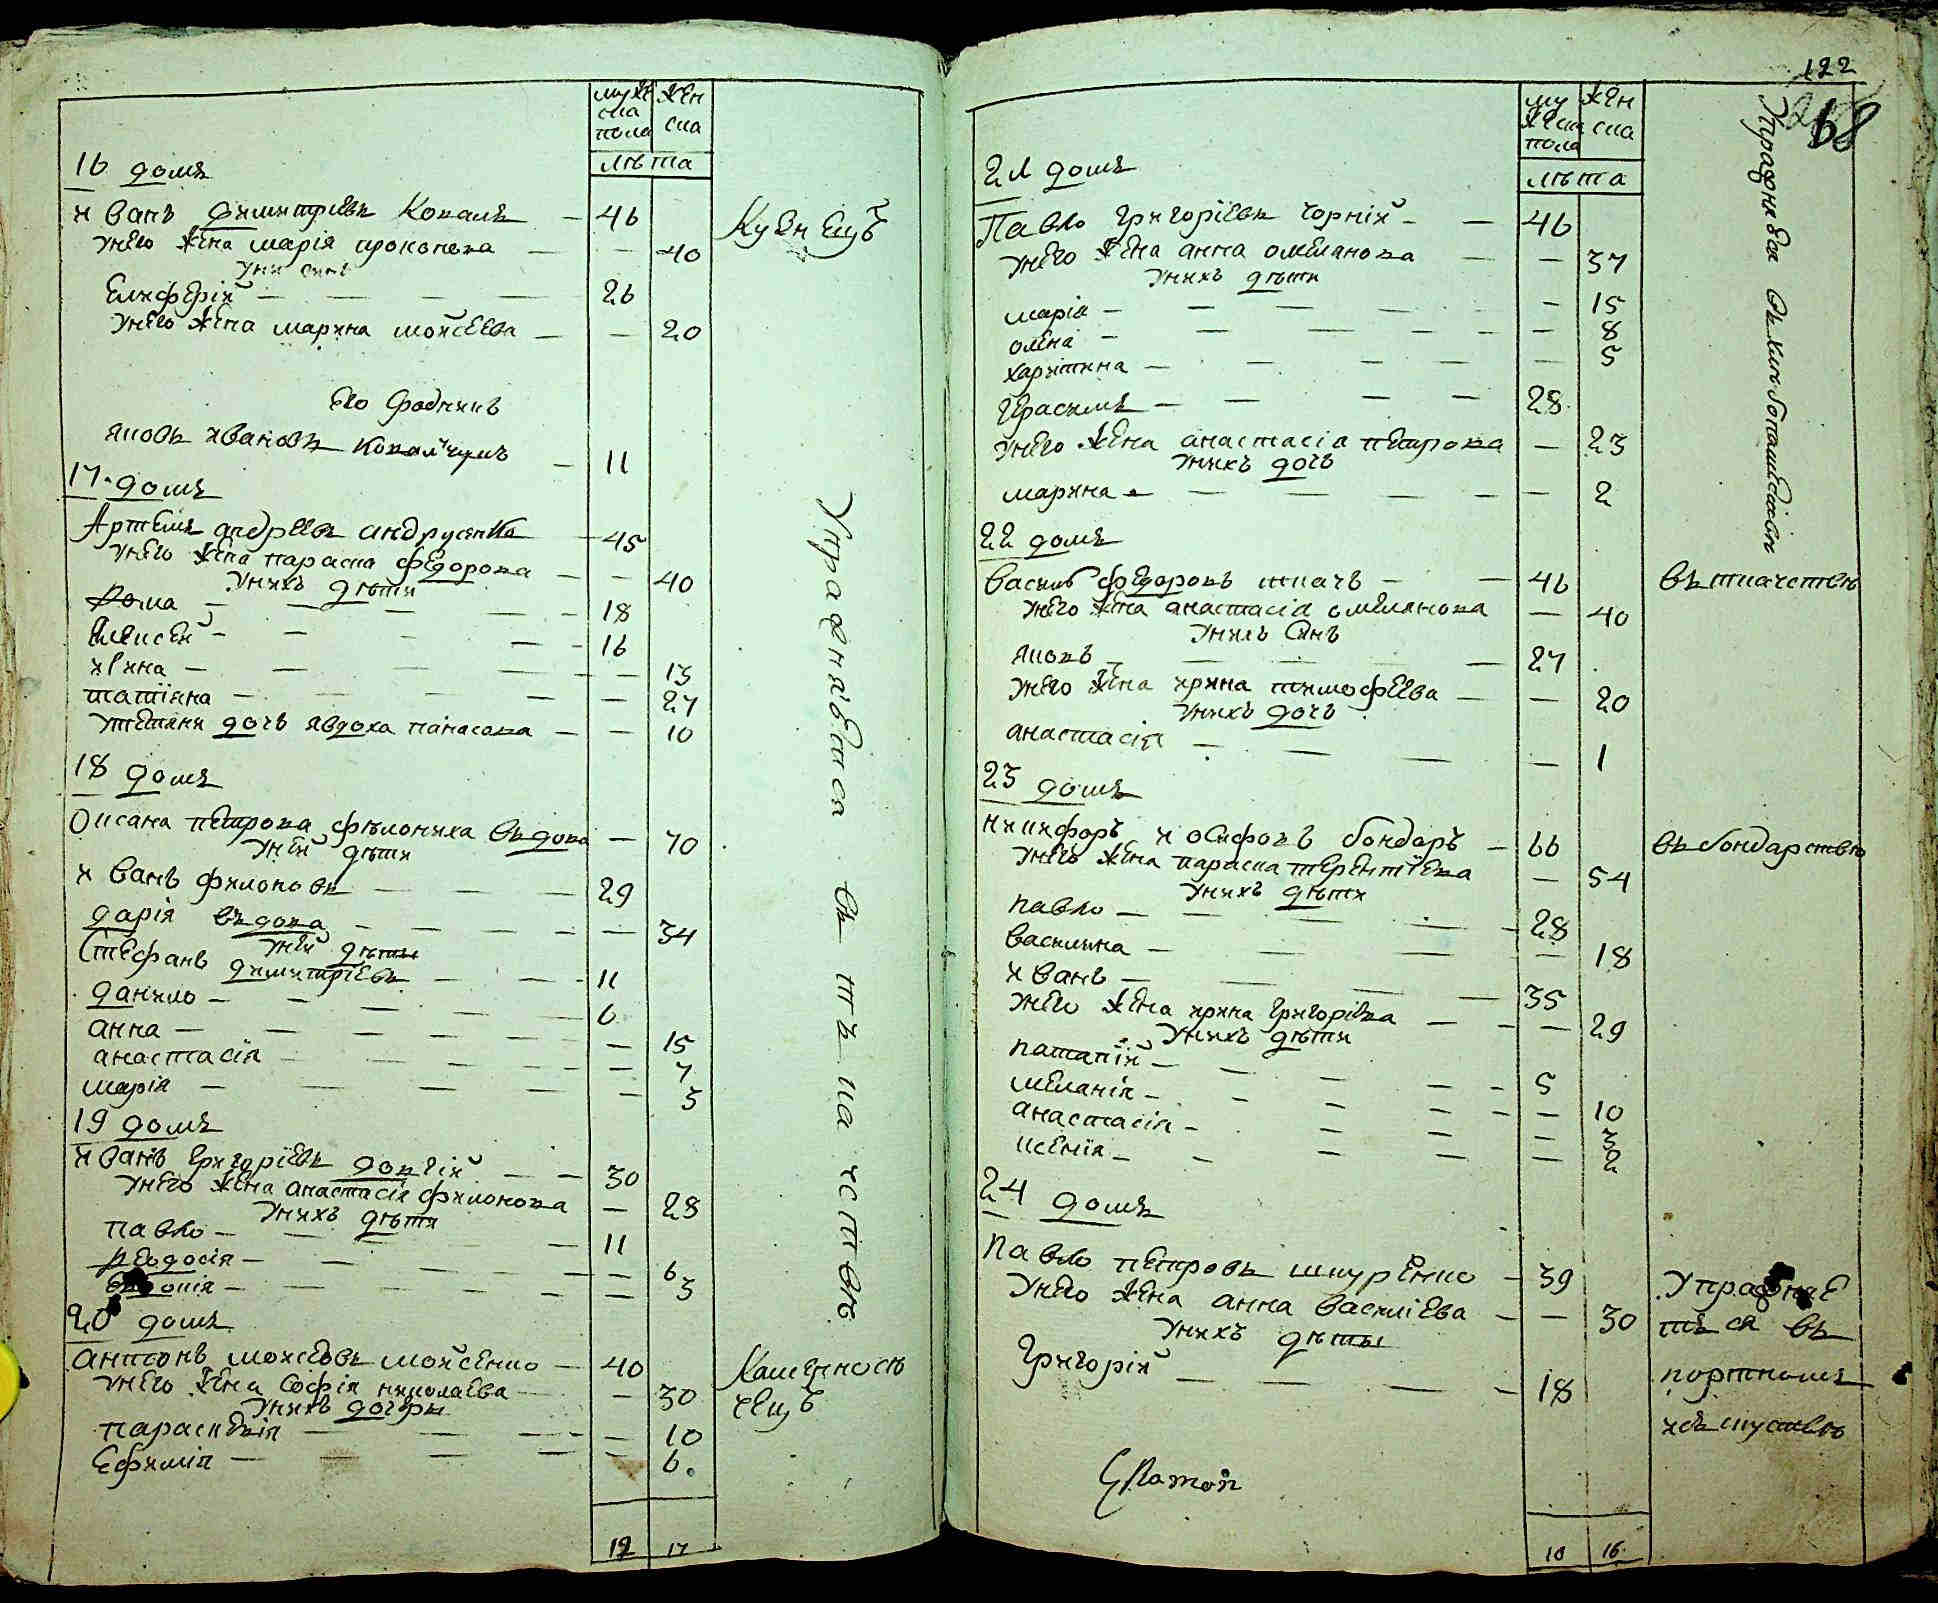 муже
ска
пола
жен
ска
лѣта
16 домъ
Иванъ Димитріевъ Коваль — 46
Унего жена марія прокопова — — 40
Уни синъ
Елиферій — — — — 26
Унего жена марина мойсеева — — 20
его Родникъ
яковъ Ивановъ ковалчукъ — 11
Кузнецъ
17 домъ
Артемъ андреевъ андрусенко — 45
Унего жена параска федорова — — 40
Унихъ дѣти
Рома — — — — 18
Алексей — — — — 16
ирина — — — — 13
татіяна — — — — 27
Утетяни дочь явдоха панасова — — 10
18 домъ
Оксана петрова филониха вдова — 70
Уней дѣти
Иванъ филоновъ — — — 29
дарія вдова — — — — 34
Уней дѣти
Стефанъ димитріевъ — — 11
данило — — — — 6
анна — — — — 15
анастасія — — — — 7
марія — — — — 3
19 домъ
Иванъ григоріевъ довгій — — 30
Унего жена анастасія филонова — 28
Унихъ дѣти
павло — — — — 11
феодосія — — — — 6
— — — — 3
Упражняется въ
20 домъ
антонъ мойсеовъ мойсенко — 40
Унего жена софія николаева — — 30
Унихъ дочери
параскевія — — — — 10
Ефимія — — — — 6.
19 17
122
68
му
жеска
пола
жен
ска
лѣта
21 домъ
Павло григоріевъ чорній — — 46
Унего жена анна омелянова — — 37
Унихъ дѣти
марія — — — — 15
олена — — — — 8
харитина — — — — 5
Герасимъ — — — — 28
Унего жена анастасія петрова — 23
Унихъ дочь
марина — — — — 2
Упражняеся въ
22 домъ
василь федоровъ ткачъ — — 46
въ ткачствѣ
Унего жена анастасія омелянова — 40
Унихъ синъ
яковъ — — — 27
Унего жена ирина тимофеева — — 20
Унихъ дочь
анастасія — — — — 1
23 домъ
никифоръ иосифовъ бондаръ — 66
въ бондарствѣ
Унего жена параска терентіева — 54
Унихъ дѣти
павло — — — — 28
василина — — — — 18
Иванъ — — — — 35
Унего жена ирина григоріева — — 29
Унихъ дѣти
патапій — — — — 5
меланія — — — — 10
анастасія — — — — 3
ксенія — — — — 2
24 домъ
Павло петровъ шкуренко — 39
Унего жена анна василіева — — 30
Унихъ дѣты
Григорій — — — — 18
Упражняе
тъся въ
портномъ
искуствѣ
10 16